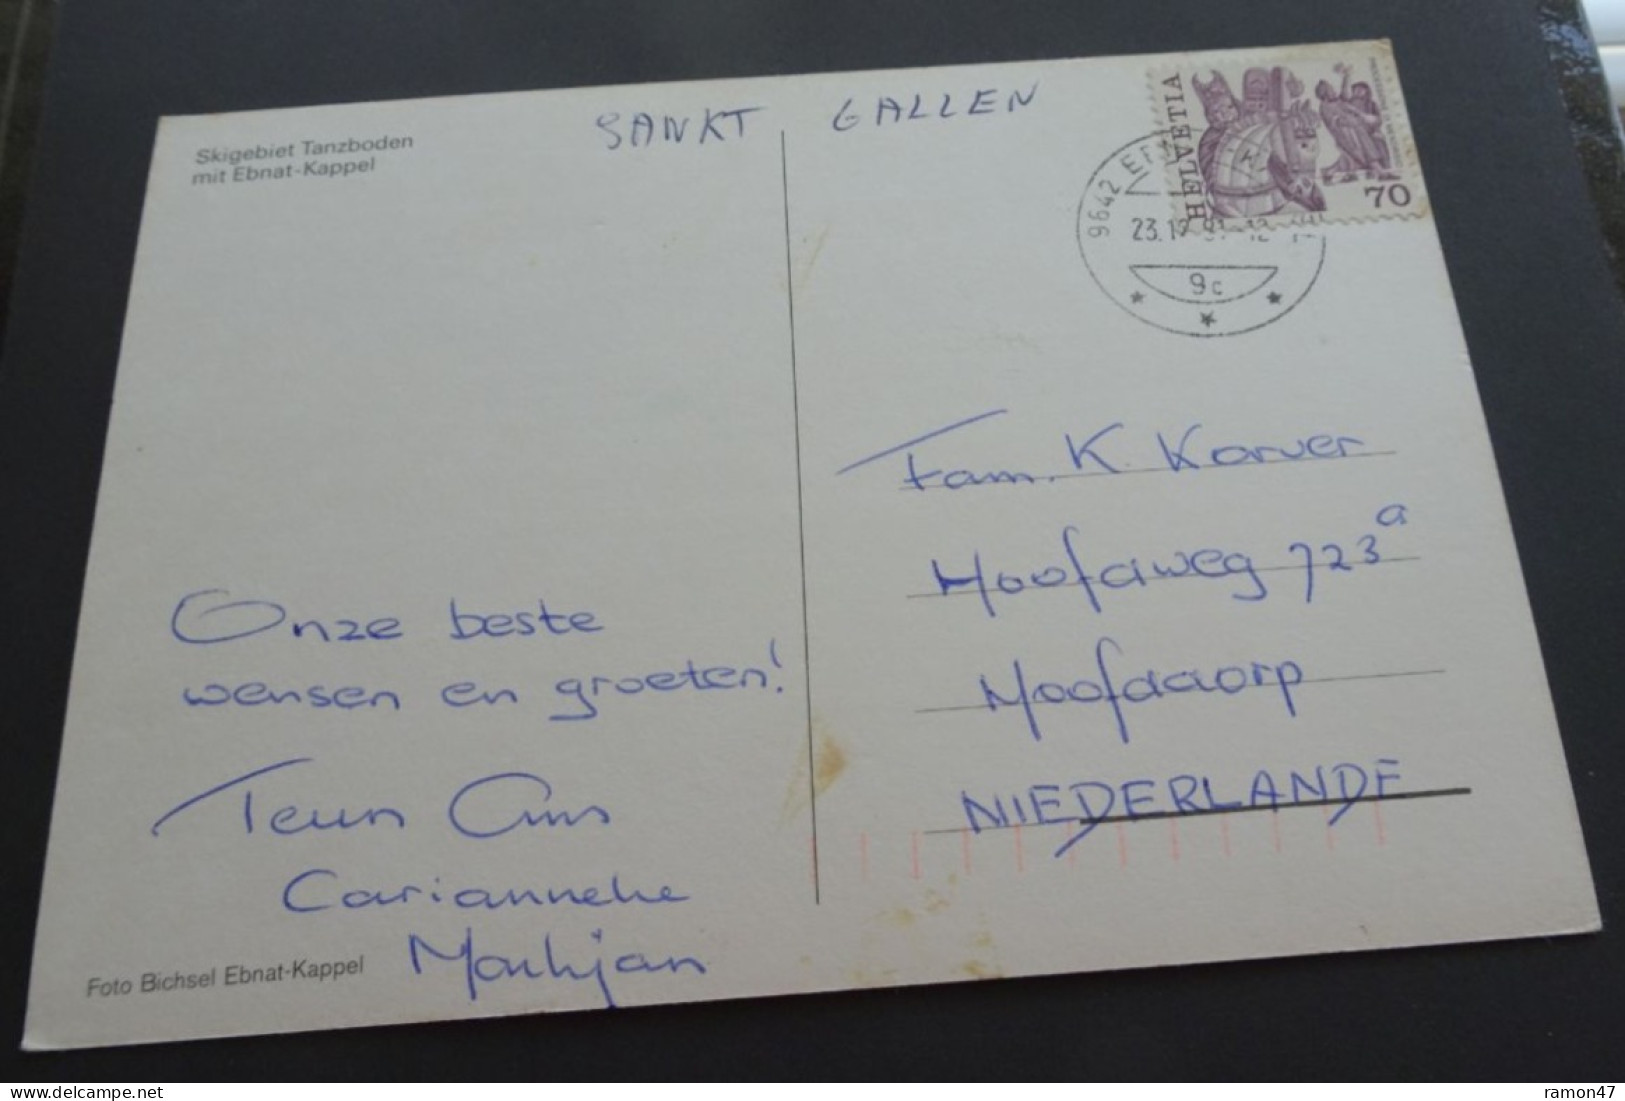 Skigebiet Tanzboden
mit Ebnat-Kappel
SANKT GALLEN
HELVETIA
70
9642
23.12
9c
Fam. K. Karver
Hoofdweg 723a
Hoofddorp
NIEDERLANDE
Onze beste
wensen en groeten!
Teun Ans
Carianneke
Markjan
Foto Bichsel Ebnat-Kappel
delcampe.net
ramon47